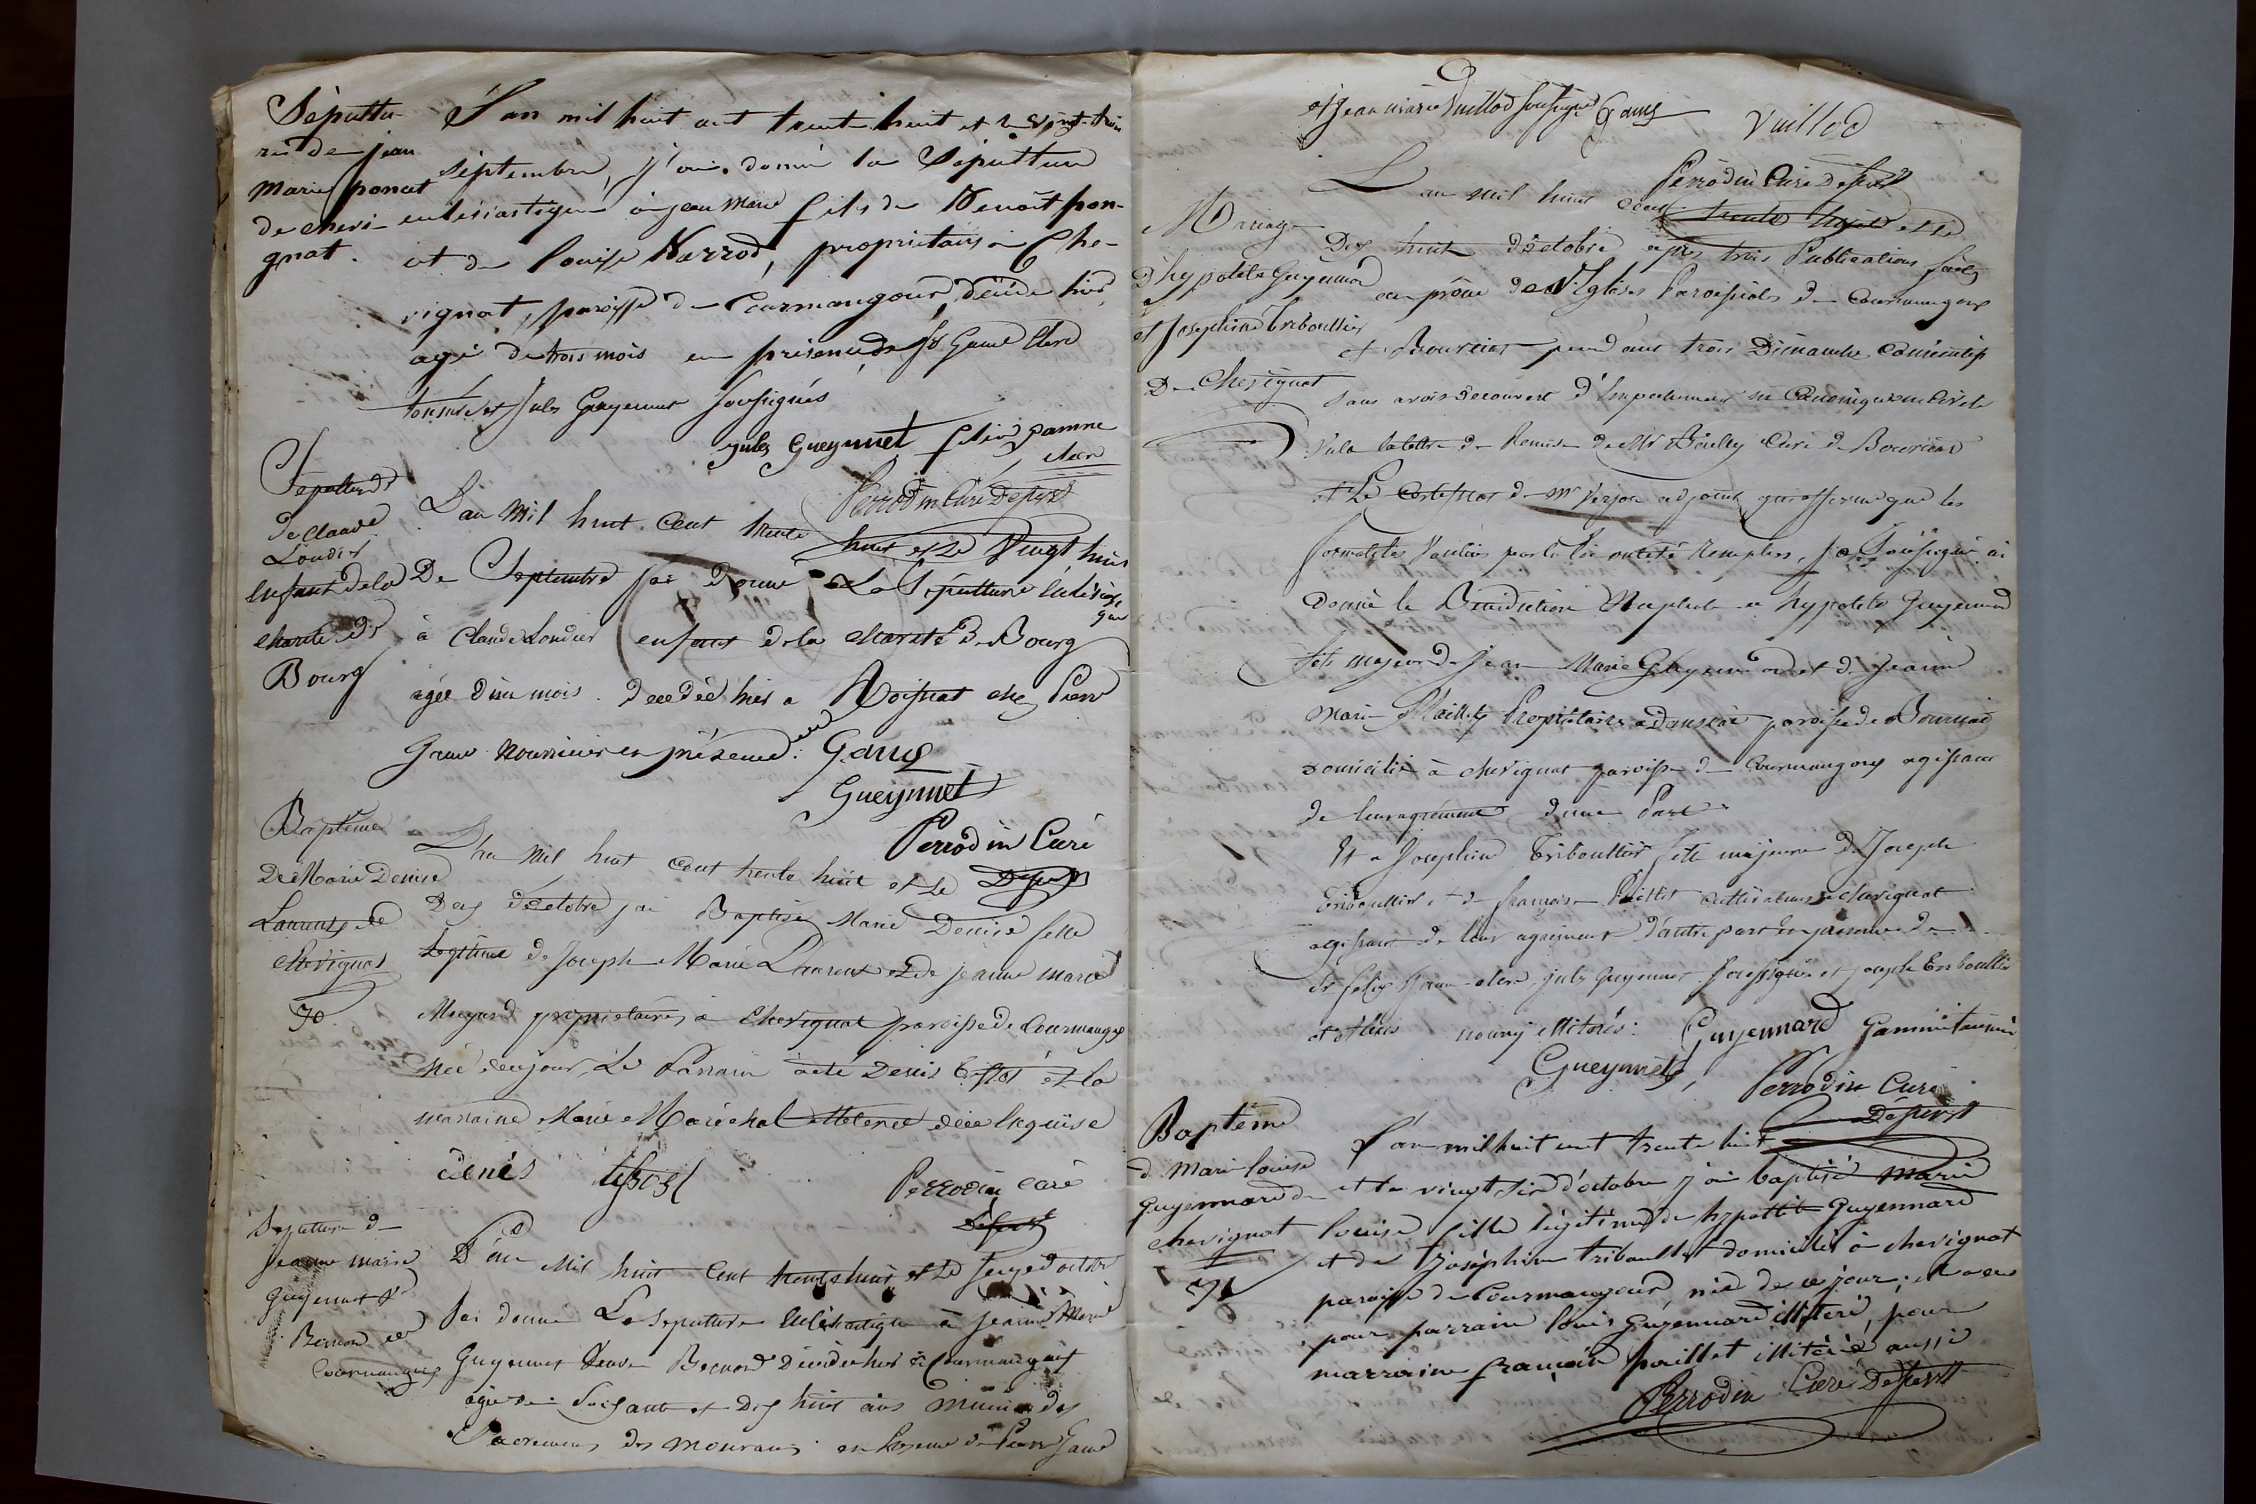 Sépultu-
re de jean
marie poncet
de chevi-
gnat.
L'an mil huit cent trente huit et le vingt trois
septembre, j'ai donné la sépulture
ecclésiastique à jean marie fils de Benoît pon-
et de louise Narrod, propriétaires à Che-
vignat, paroisse de Courmangoux, décédé hier
agé de trois mois en présence de Game clerc
tonsuré et jules Gueyennet soussignés
jules Gueynnet felix gamme
clerc
Perrodin Curé Desservt
Sépulture de
de Claude
Londer
enfant de la
charité de
Bourg
L'an mil huit cent trente huit et le Vingt huit
De Septembre j'ai donné La Sépulture Ecclésiasti
que
à Claude Londer enfant de la charité de Bourg
agée d'un mois. décédée hier a Roissiat chez Pierre
Game nourricier en présence Game
Gueynnet
Perrodin Curé
Desservt
Baptême
De Marie Denise
Laurent de
Chevignat
70
L'an mil huit cent trente huit et le
Dix d'octobre j'ai Baptisé Marie Denise fille
Legitime de Joseph Marie Laurent et de jeanne marie
propriétaires à Chevignat paroisse de Courmangoux
née ce jour, Le Parrain a été Denis et la
marraine Marie Maréchal de ce requise
denis
Perrodin curé
Desservt
Sépulture de
jeanne marie
Guyennet Ve
Bernard de
Courmangoux
L'an mil huit cent trente huit et le seize d'octobre
J'ai donné La Sepulture Ecclésiastique à jeanne Marie
Guyennet Veuve Bernard décédée hier à Courmangoux
agée de soixante et dix huit ans munie des
Sacremens des mourans en présence de Pierre Game
et jean marie Vuillod soussigné Game Vuillod
Perrodin Curé Desservt
Mariage
d'hypolite Guyennard
et Josephine Triboullier
De Chevignat
L'an mil huit cent trente huit et le
Dix huit d'octobre après trois Publications faites
au prône des Eglises Paroissiales de Courmangoux
et Bourcia pendant trois Dimanches Consécutifs
sans avoir découvert d'Empechement ni Canonique ni Civil
Vu la lettre de Remise de Mr Curé de Bourcia
et Le Certificat de Mr Verjon adjoint qui affirme que les
formalités Voulues par la loi ont été Remplies, Je Soussigné ai
Donné la Bénédiction Nuptiale a hypolite Guyennard
fils majeur de Jean Marie Guyennard et de Jeanne
Marie Propriétaires a paroisse de Bourcia
domicilié à chevignat paroisse de Courmangoux agissant
de leur agrément d'une Part
Et a Josephine Triboullier fille majeure de Joseph
Triboullier et de françoise Paillet cultivateurs a chevignat
agissant de leur agrément d'autre part en présence de
Sr felix Game clerc, jules Gueyennet soussignés et joseph Triboullier
et illitérés: Guyennard Gamme tonsuré
Gueynnet
Perrodin Curé
Desservt
Baptême
de Marie louise
Guyennard de
chevignat
71
L'an mil huit cent trente huit
et le vingt six d'octobre j'ai baptisé marie
louise fille légitime de hypolite Guyennard
et de Joséphine Triboullet domiciliés à chevignat
paroisse de Courmangoux, née de ce jour, et a eu
pour parrain louis Guyennard illitéré, pour
marraine françoise paillet illitérée aussi
Perrodin Curé Desservt